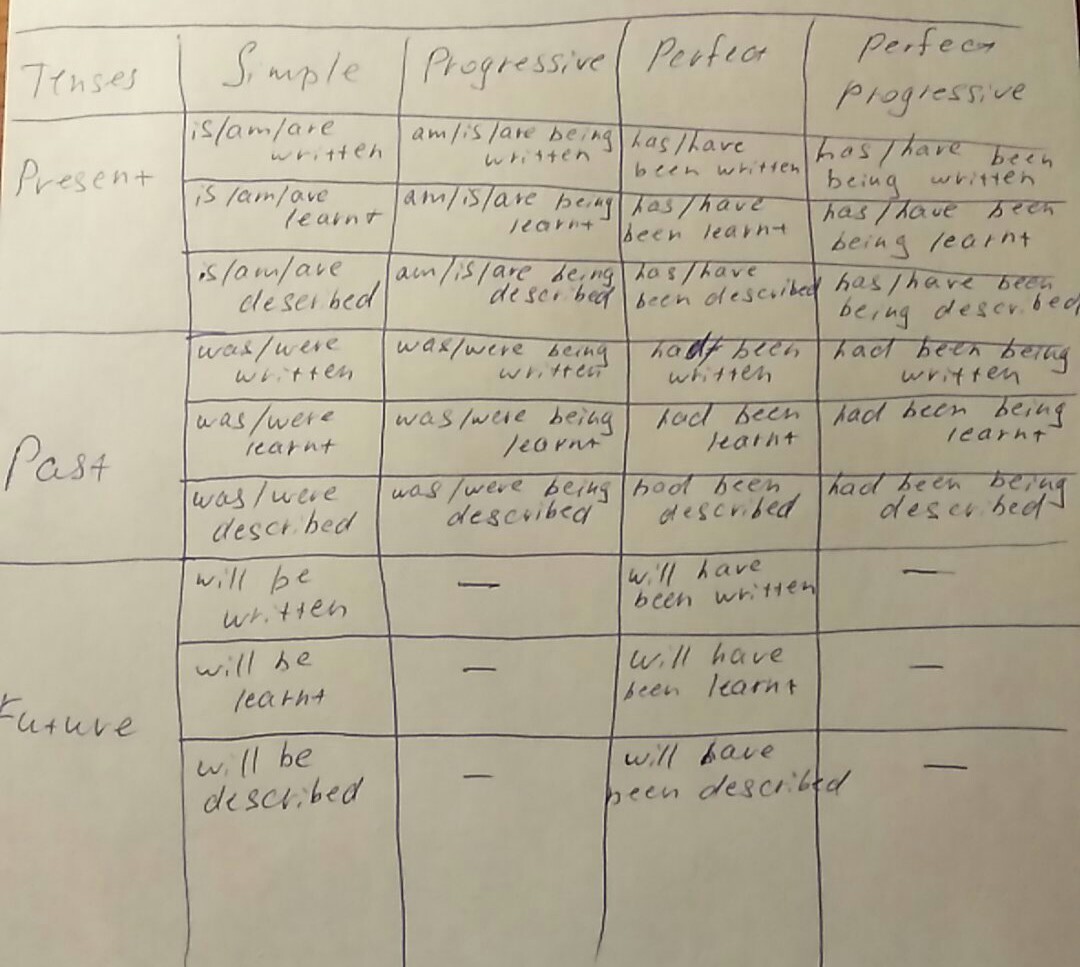 Tenses Simple Progressive Perfect Perfect
progressive
Present is/am/are am/is/are being has/have has/have been
written written been written being written
is/am/are am/is/are being has/have has/have been
learnt learnt been learnt being learnt
is/am/are am/is/are being has/have has/have been
described described been described being described
Past was/were was/were being had been had been being
written written written written
was/were was/were being had been had been being
learnt learnt learnt learnt
was/were was/were being had been had been being
described described described described
Future will be — will have —
written been written
will be — will have —
learnt been learnt
will be — will have —
described been described